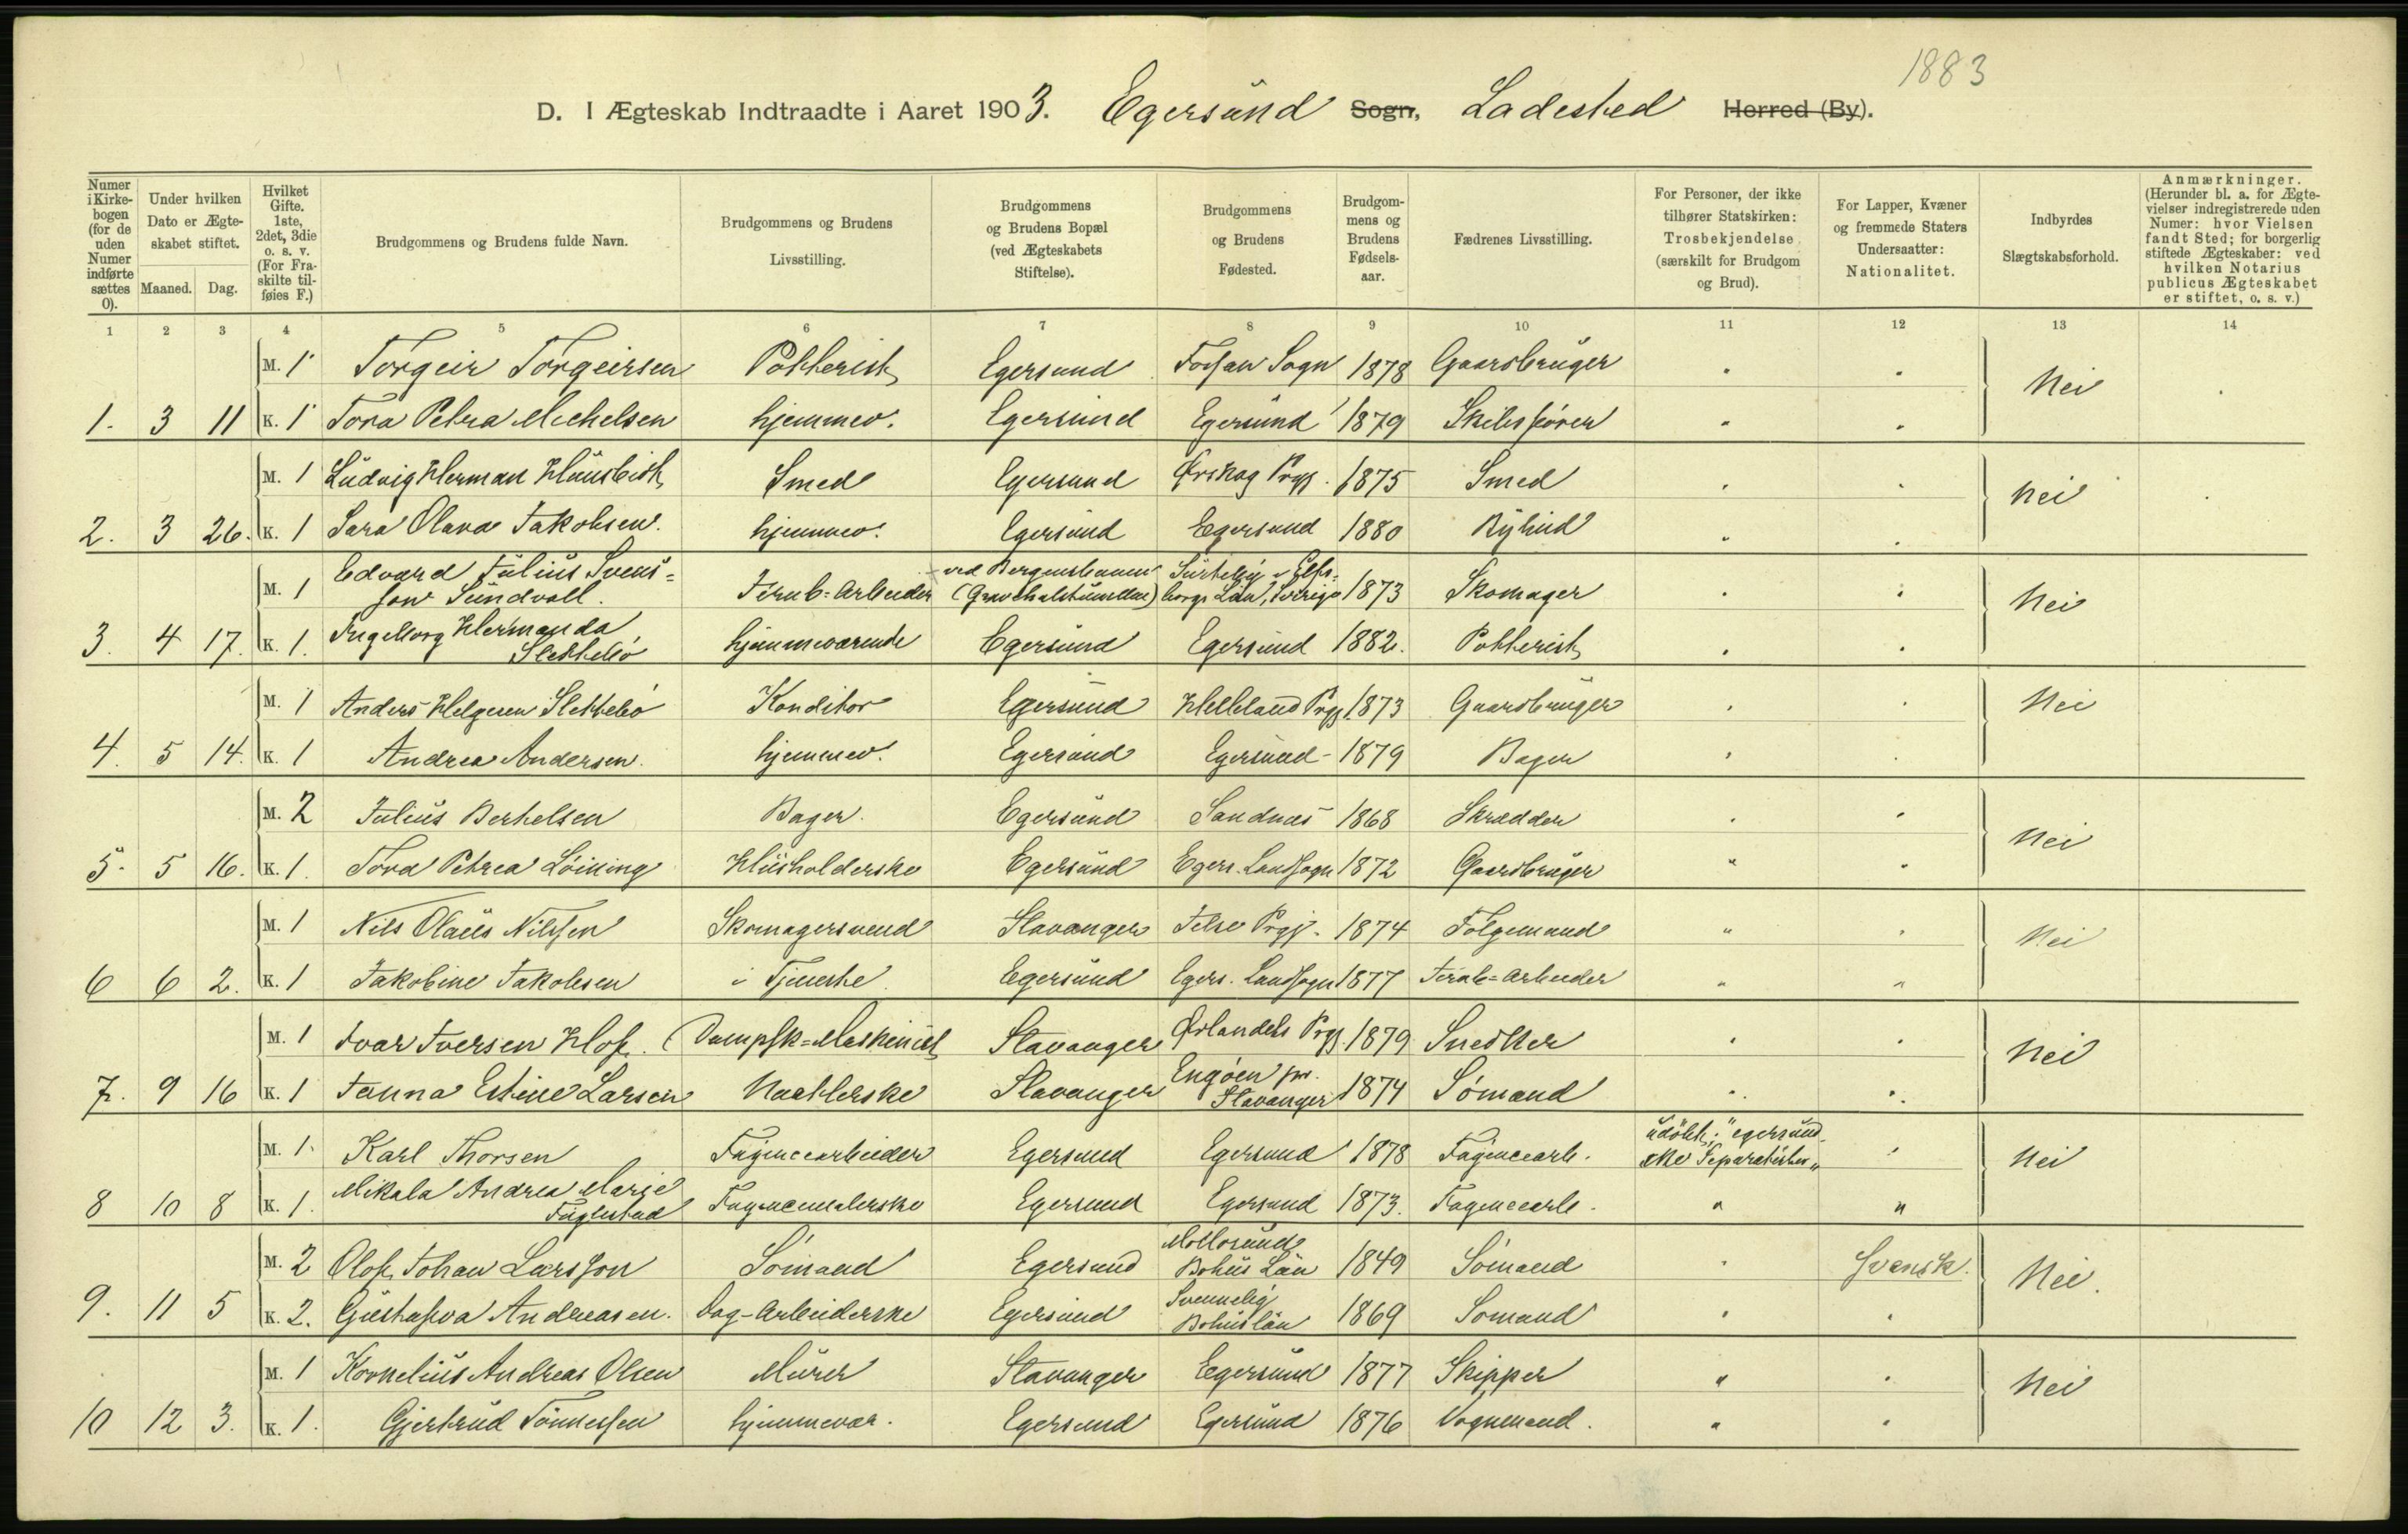 1883
D. I Ægteskab Indtraadte i Aaret 1903. Egersund Sogn, Ladested Herred (By).
Numer i Kirkebogen (for de uden Numer indførte sættes 0).
Under hvilken Dato er Ægteskabet stiftet.
Maaned. Dag.
Hvilket Gifte. 1ste, 2det, 3die o. s. v. (For Fraskilte tilføies F.)
Brudgommens og Brudens fulde Navn.
Brudgommens og Brudens Livsstilling.
Brudgommens og Brudens Bopæl (ved Ægteskabets Stiftelse).
Brudgommens og Brudens Fødested.
Brudgommens og Brudens Fødselsaar.
Fædrenes Livsstilling.
For Personer, der ikke tilhører Statskirken: Trosbekjendelse (særskilt for Brudgom og Brud).
For Lapper, Kvæner og fremmede Staters Undersaatter: Nationalitet.
Indbyrdes Slægtskabsforhold.
Anmærkninger. (Herunder bl. a. for Ægtevielser indregistrerede uden Numer: hvor Vielsen fandt Sted; for borgerlig stiftede Ægteskaber: ved hvilken Notarius publicus Ægteskabet er stiftet, o. s. v.)
1 2 3 4 5 6 7 8 9 10 11 12 13 14
M. 1 Torgeir Torgeirsen Potterist Egersund Fossan Sogn 1878 Gaardbruger " " Nei
1. 3 11 K. 1 Tora Petra Michelsen hjemmev. Egersund Egersund 1879 Skibsfører " "
M. 1 Ludvig Herman Husbith Smed Egersund Ørskog Prgj. 1875 Smed " " Nei
2. 3 26. K. 1 Sara Olava Jakobsen. hjemmev. Egersund Egersund 1880 Bybud " "
M. 1 Edvard Julius Svens=
son Sundvall. Jernb=Arbeider ved Bergensbanen
(Gravehalstunellen) Elfs=
borgs Län, Sverige 1873 Skomager " " Nei
3. 4 17. K. 1. Ingeborg Hermanda
Slettebö hjemmeværende Egersund Egersund 1882. Potterist " "
M. 1 Anders Helgesen Slettebö Konditor Egersund Helleland Prgj. 1873 Gaardbruger " " Nei
4. 5 14. K. 1 Andrea Andersen. hjemmev. Egersund Egersund 1879 Bager " "
M. 2 Julius Berthelsen Bager. Egersund Sandnæs 1868 Skrædder " " Nei
5. 5 16. K. 1. Tora Petrea Löining Husholderske Egersund Egers. Landsogn 1872 Gaardbruger " "
M. 1 Nils Olaus Nilssen Skomagersvend Stavanger Jelse Prgj. 1874 Følgemand " " Nei
6 6 2. K. 1 Jakobine Jakobsen i Tjeneste. Egersund Egers. Landsogn 1877 Jernb=Arbeider " "
M. 1 Ivar Iversen Hof. Dampsk=Maskinist Stavanger Ørlandets Prgj. 1879 Snedker " " Nei
7. 9 16 K. 1 Janna Estine Larsen Naatlerske Stavanger Engöen pr.
Stavanger 1874 Sömand " "
M. 1. Karl Thorsen Fayencearbeider Egersund Egersund 1878 Fayencearb. udöbt; "egersund-
ske Separatister" " Nei
8 10 8 K. 1. Mikala Andrea Marie
Fuglestad Fayencemalerske Egersund Egersund 1873. Fayencearb. " "
M. 2 Olof Johan Larsson Sömand Egersund Mollösund
Bohus Län 1849 Sömand " Svensk. Nei.
9. 11 5 K. 2. Gustafva Andreasen. Dag-Arbeiderske Egersund
Bohuslän 1869 Sömand " "
M. 1 Kornelius Andreas Olsen Murer Stavanger Egersund 1877 Skipper " " Nei
10 12 3. K. 1. Gjertrud Tönnessen hjemmevær. Egersund Egersund 1876 Vognmand. " "